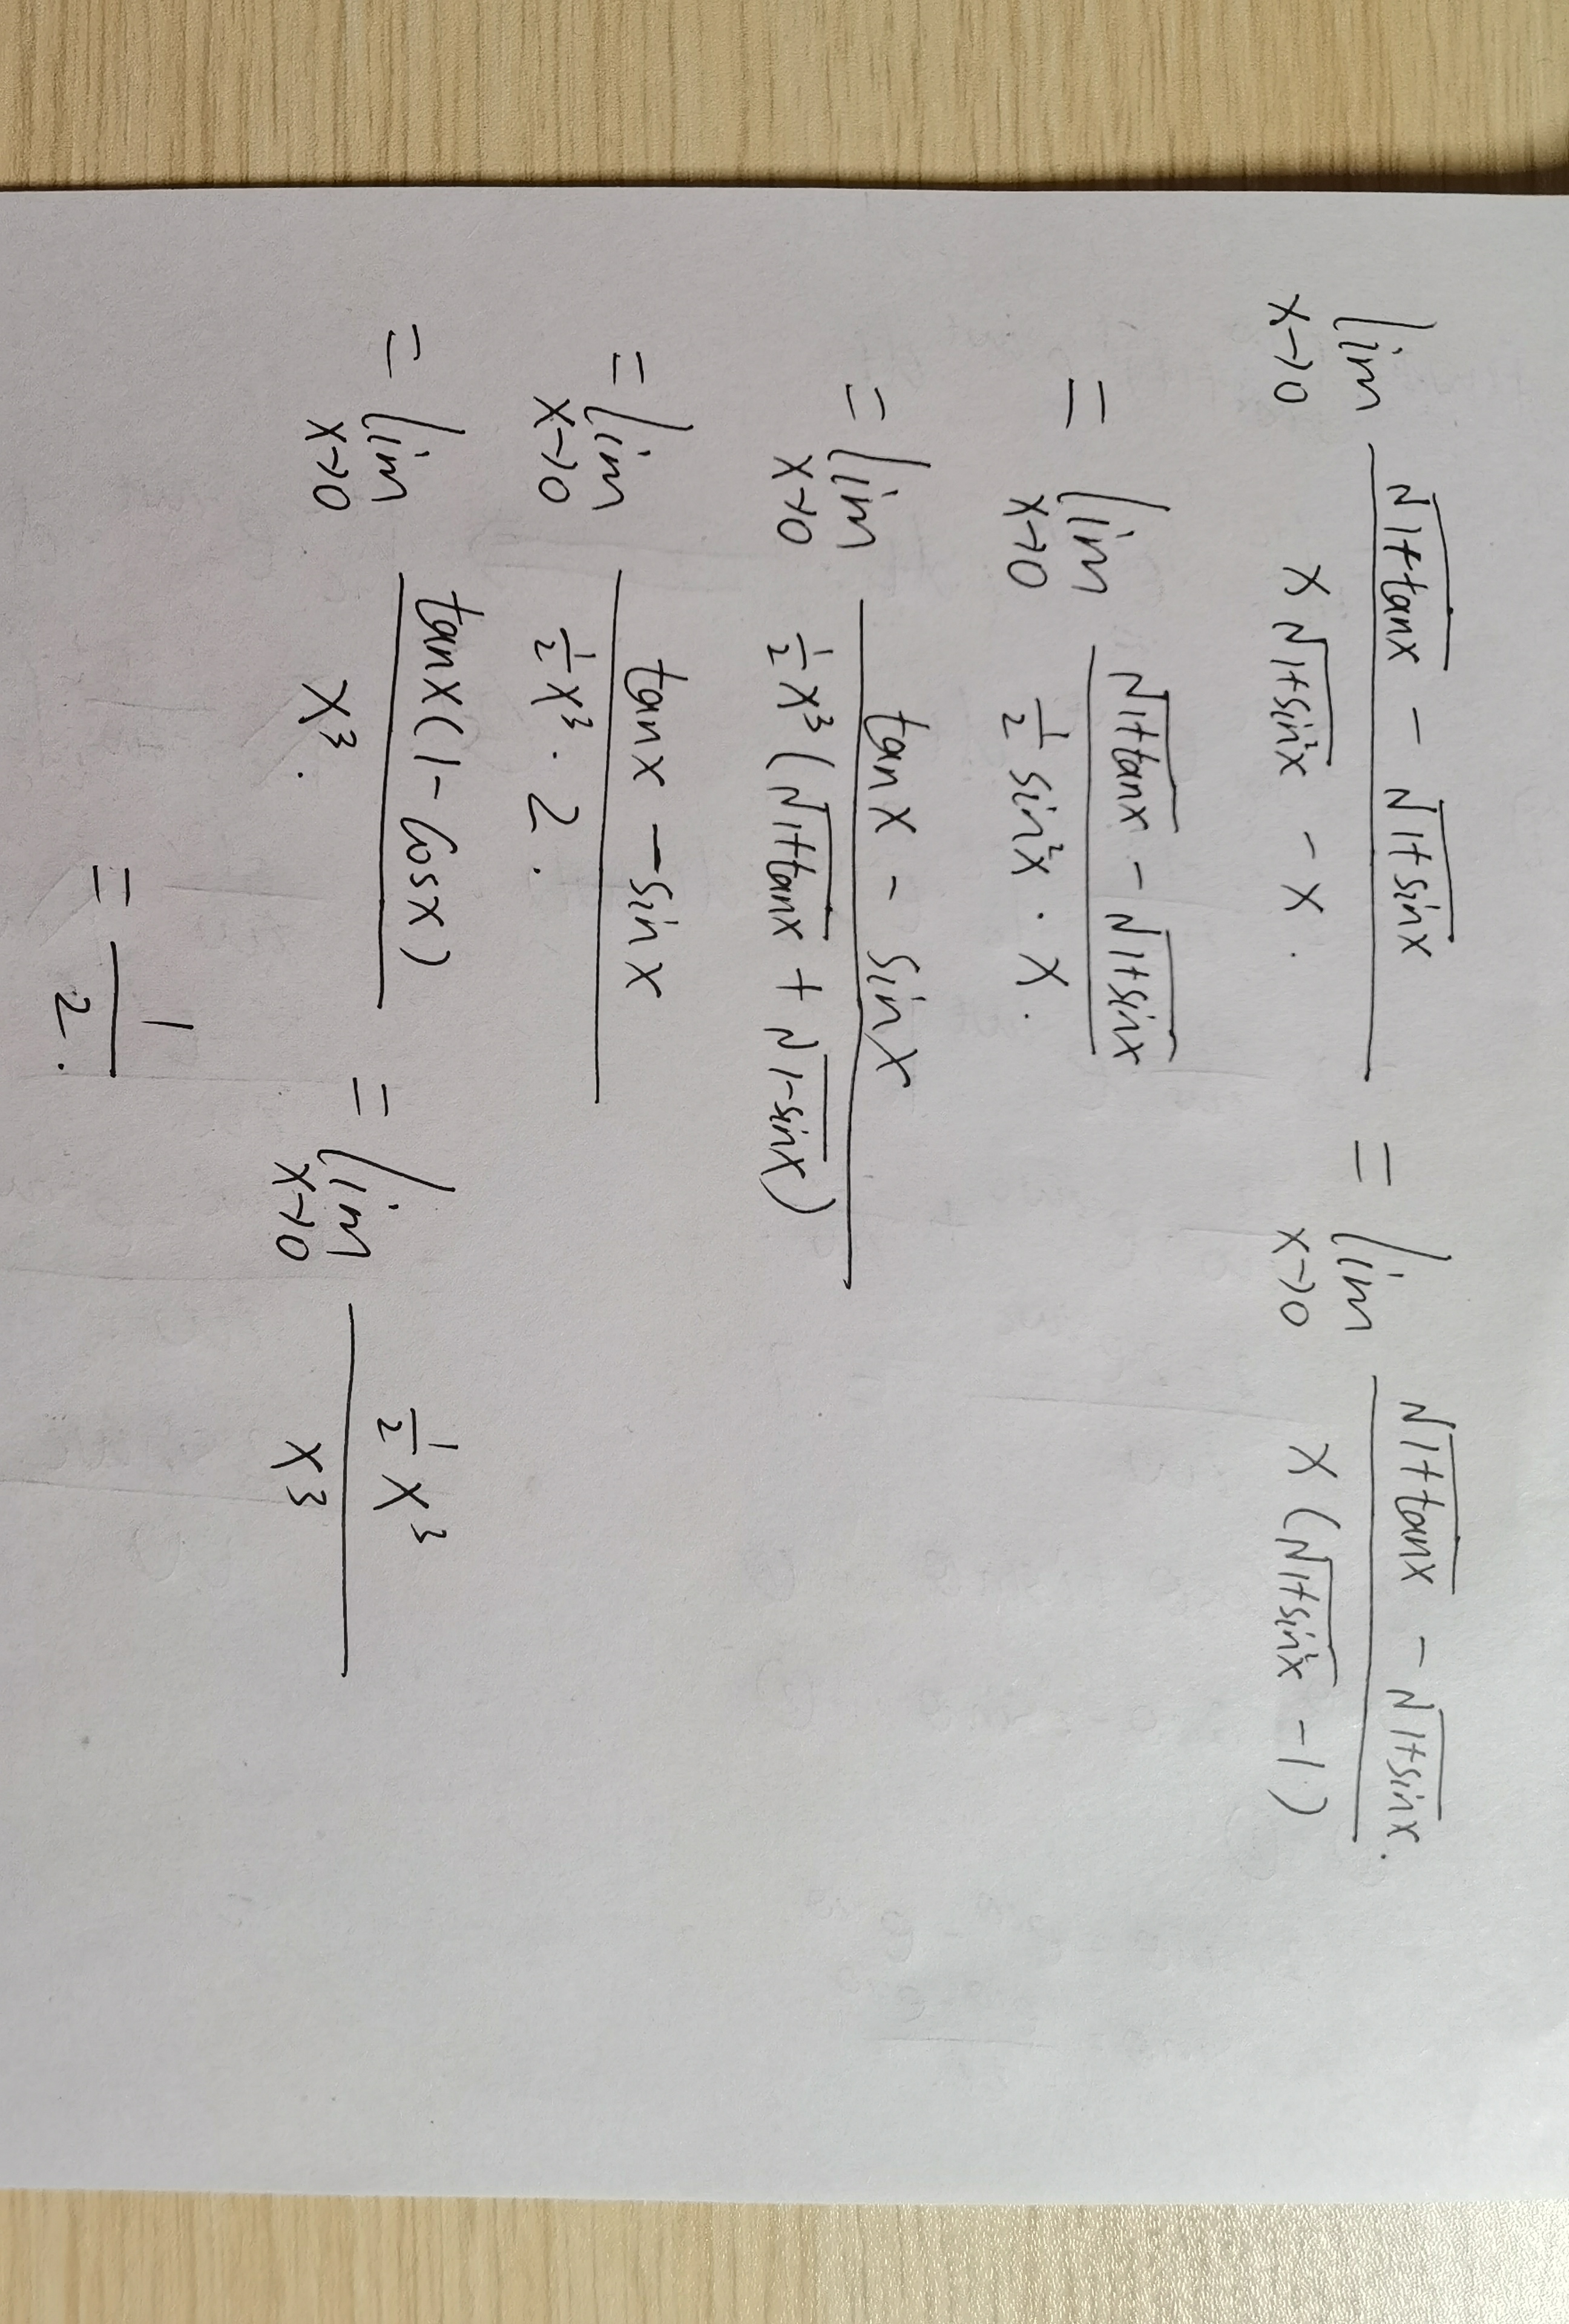 lim x→0 (√(1+tanx) - √(1+sinx)) / (x√(1+sin²x) - x.) = lim x→0 (√(1+tanx) - √(1+sinx).) / (x(√(1+sin²x) - 1))
= lim x→0 (√(1+tanx) - √(1+sinx)) / (1/2 sin²x · x.)
= lim x→0 (tanx - sinx) / (1/2 x³(√(1+tanx) + √(1-sinx)))
= lim x→0 (tanx - sinx) / (1/2 x³ · 2.)
= lim x→0 (tanx(1-cosx)) / (x³.) = lim x→0 (1/2 x³) / (x³)
= 1/2.